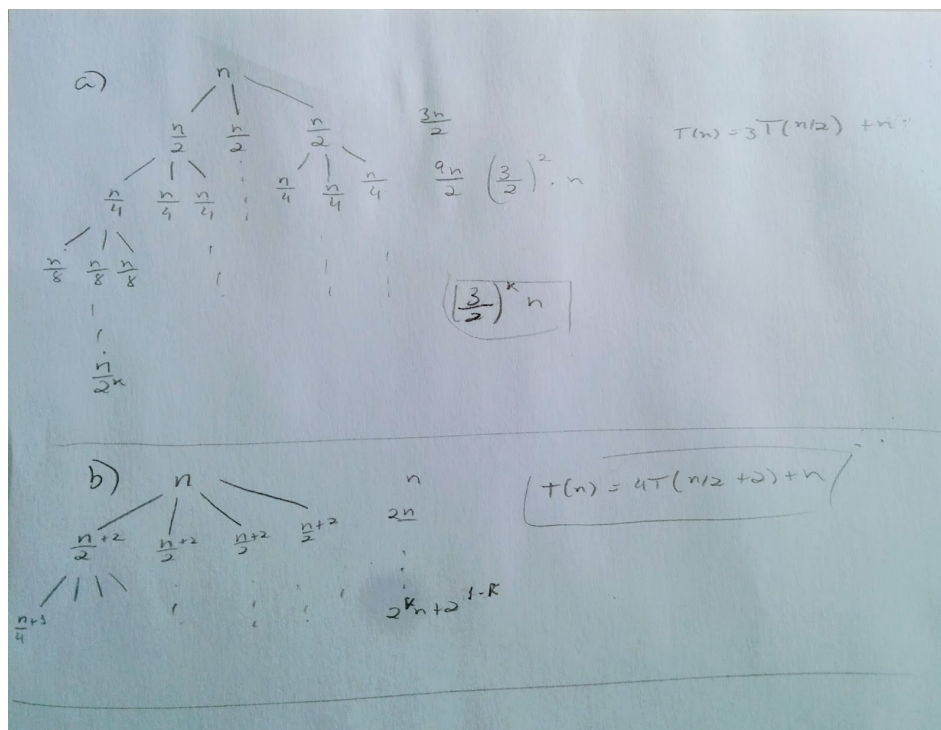 a)
n
n/2 n/2 n/2 3n/2 T(n) = 3T(n/2) + n
n/4 n/4 n/4 n/4 n/4 n/4 9n/2 (3/2)^2 . n
n/8 n/8 n/8
(3/2)^k n
n/2^k
b) n n T(n) = 4T(n/2 +2) + n
n/2+2 n/2+2 n/2+2 n/2+2 2n
2^k n + 2^1-k